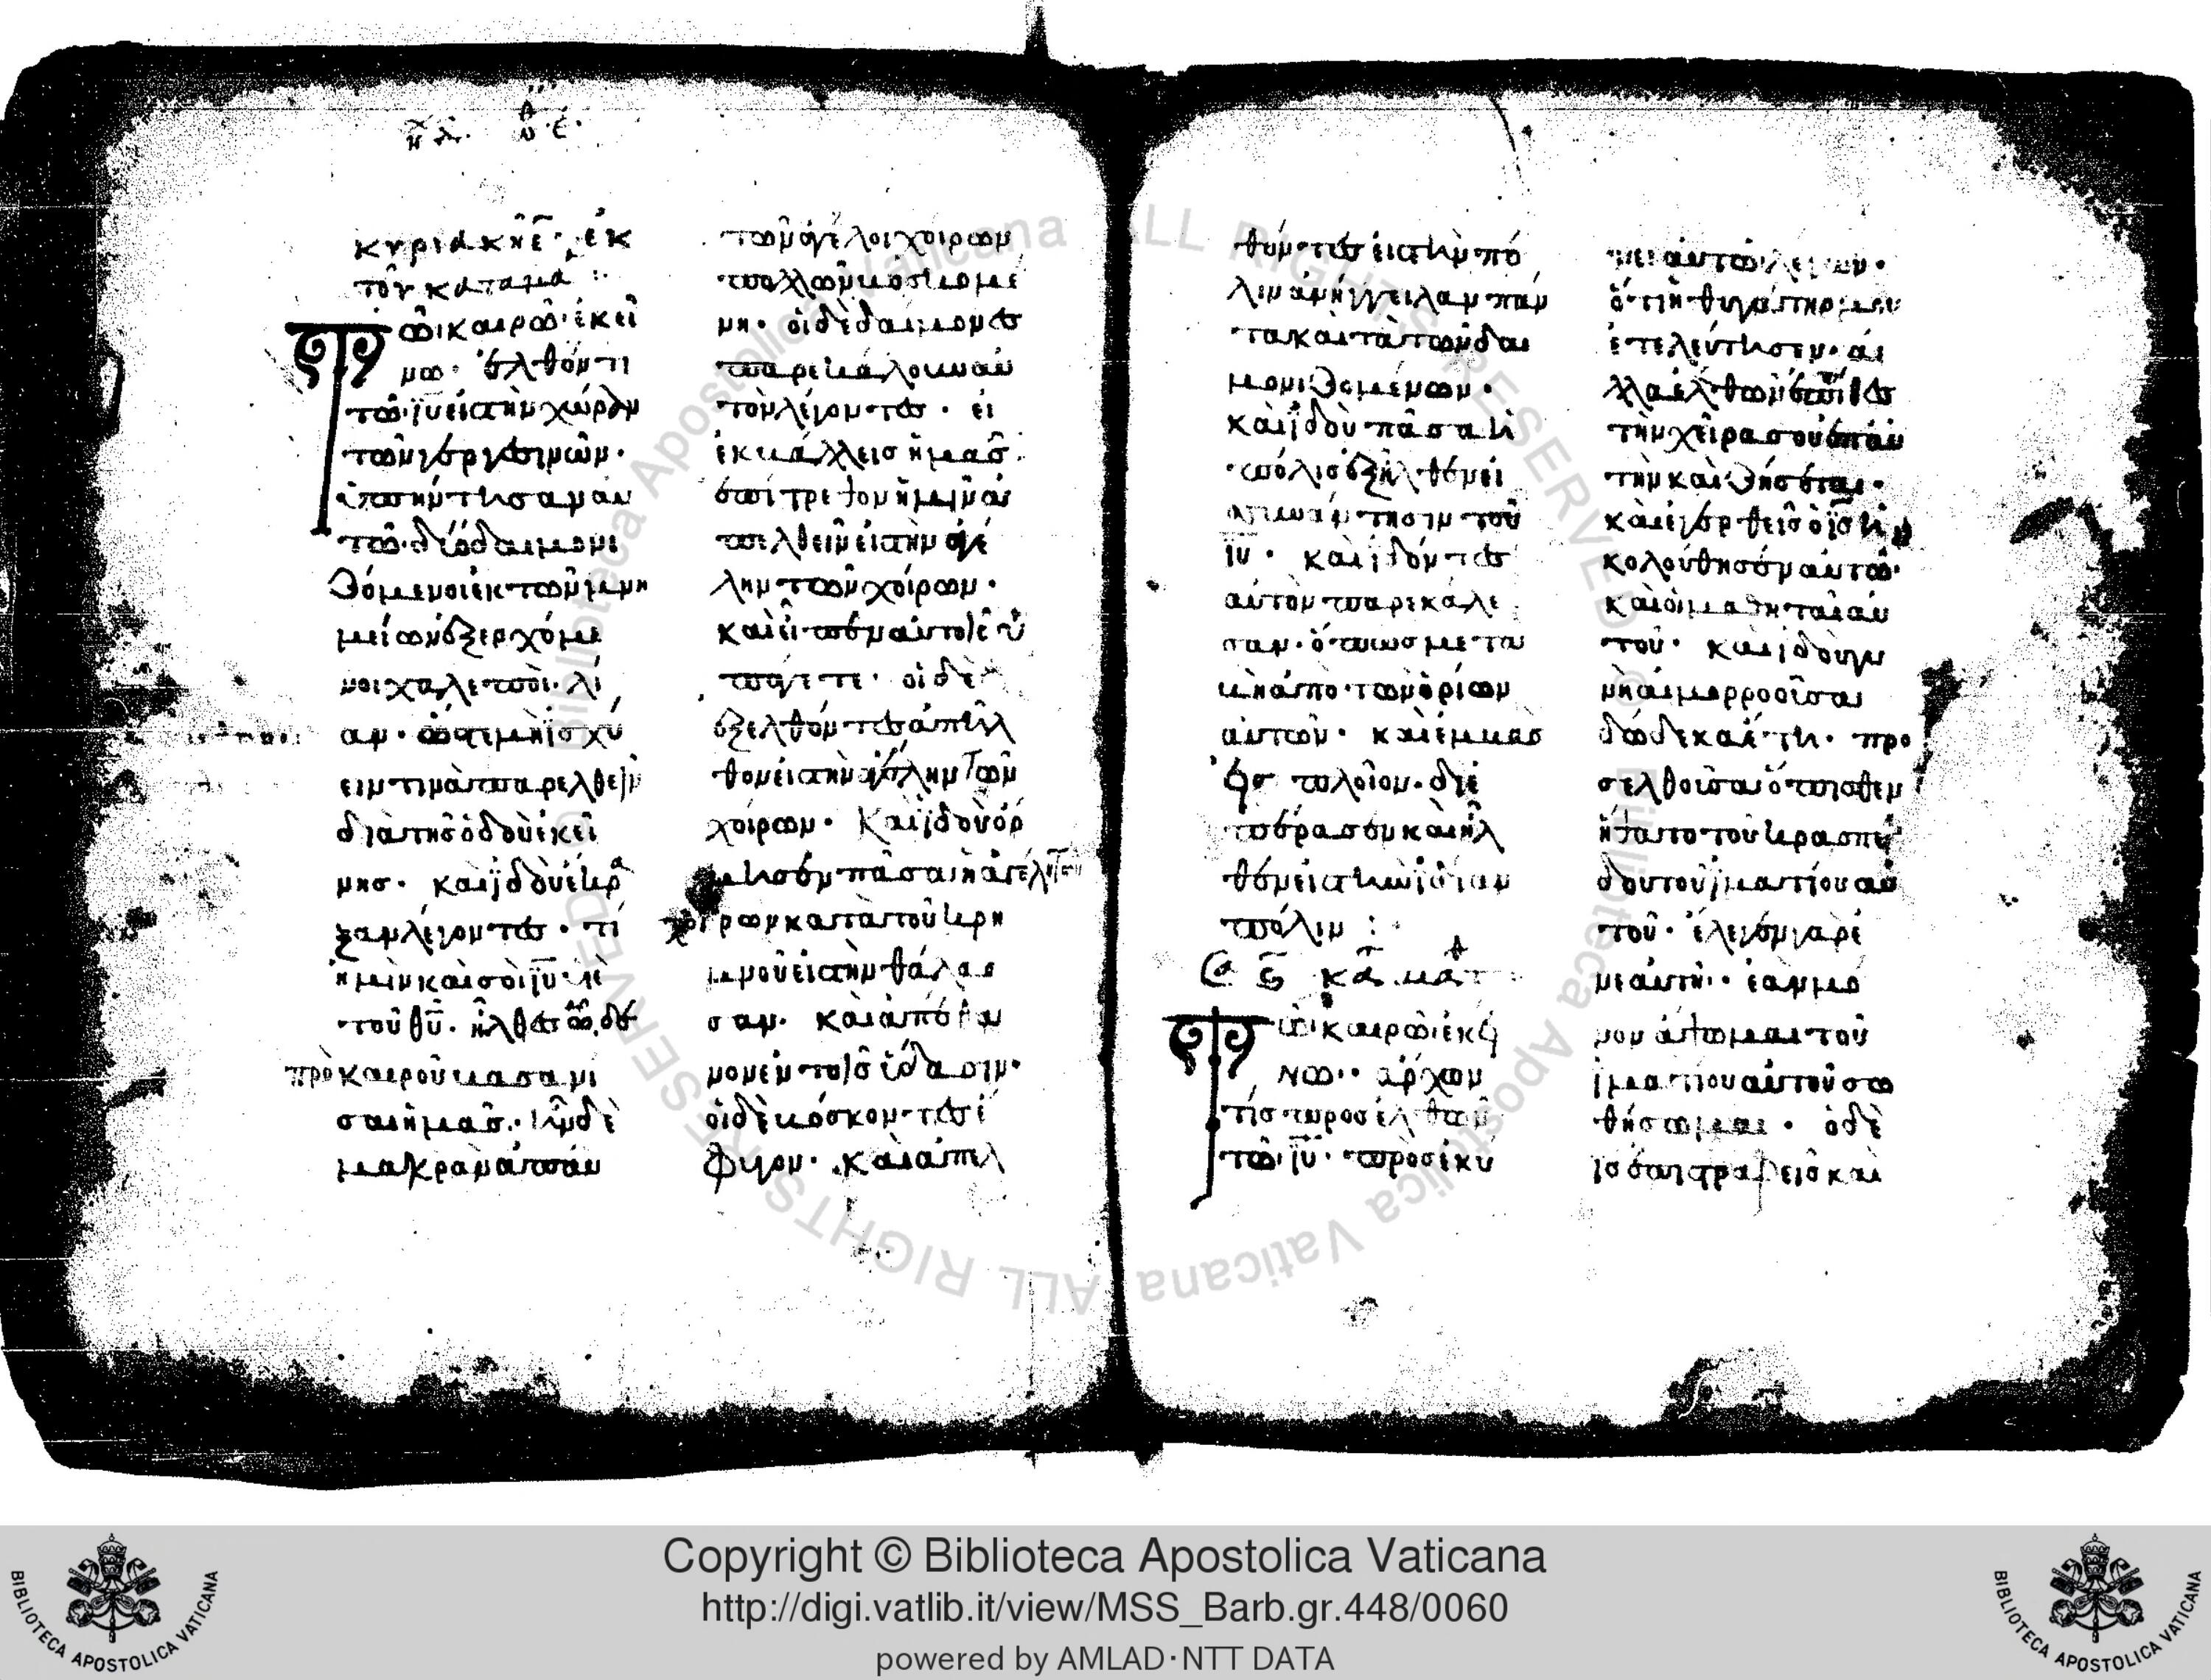 κυριακη ε· εκ
του κατα μα :·
Τῶι καιρῶ· ἐκεί
νω· ἐλθόντι
τῶ ἰυ εἰς τὴν χώραν
τῶν γεργεσινῶν·
ὑπήντησαν αυ
τῶ· δύο δαιμονι
ζόμενοι ἐκ τῶν μνη
μείων ἐξερχόμε
νοι χαλεποὶ λί
αν· ὥστε μὴ ἰσχύ
ειν τινὰ παρελθεῖν
διὰ τῆς ὁδοῦ ἐκεί
νης· καὶ ἰδοὺ ἔκρα
ξαν λέγοντες· τί
ἡμῖν καὶ σοὶ ἰυ υἱὲ
τοῦ θυ· ἦλθες ὧδε
πρὸ καιροῦ βασανι
σαι ἡμᾶς· ἦν δὲ
μακρὰν ἀπ' αυ
τῶν ἀγέλη χοίρων
πολλῶν βοσκομέ
νη· οἱ δὲ δαίμονες
παρεκάλουν αὐ
τὸν λέγοντες· εἰ
ἐκβάλλεις ἡμᾶς·
ἐπίτρεψον ἡμῖν ἀ
πελθεῖν εἰς τὴν ἀγέ
λην τῶν χοίρων·
καὶ εἶπεν αὐτοῖς ὑ
πάγετε· οἱ δὲ
ἐξελθόντες ἀπῆλ
θον εἰς τὴν ἀγέλην τῶν
χοίρων· Καὶ ἰδοὺ ὅρ
μησεν πᾶσα ἡ ἀγέλη τῶν
χοίρων κατὰ τοῦ κρη
μνοῦ εἰς τὴν θάλασ
σαν· καὶ ἀπέθα
νον ἐν τοῖς ὕδασιν·
οἱ δὲ βόσκοντες ἔ
φυγον· καὶ ἀπελ
θόντες εἰς τὴν πό
λιν ἀνήγγειλαν πάν
τα καὶ τὰ τῶν δαι
μονιζομένων·
καὶ ἰδοὺ πᾶσα ἡ
πόλις ἐξῆλθεν εἰ
ς ὑπάντησιν τοῦ
ἰυ· καὶ ἰδόντες
αὐτὸν παρεκάλε
σαν· ὅπως μετα
βῆ ἀπὸ τῶν ὁρίων
αὐτῶν· καὶ ἐμβὰς
εἰς πλοῖον· διε
πέρασεν καὶ ἦλ
θεν εἰς τὴν ἰδίαν
πόλιν :
Τῶι καιρῶ ἐκεί
νω·· ἄρχων
τίς προσελθὼν
τῶ ἰυ· προσεκύ
νει αὐτῶ λέγων·
ὅτι ἡ θυγάτηρ μου
ἐτελεύτησεν· ἀ
λλα ἐλθὼν ἐπίθες
τὴν χεῖρα σου ἐπ' αὐ
τὴν καὶ ζήσεται·
καὶ ἐγερθεὶς ὁ ἰς ἠ
κολούθησεν αὐτῶ·
καὶ οἱ μαθηταὶ αὐ
τοῦ· καὶ ἰδοὺ γυ
νὴ αἱμορροοῦσα
δώδεκα ἔτη· προ
σελθοῦσα ὄπισθεν
ἥψατο τοῦ κρασπέ
δου τοῦ ἱματίου αὐ
τοῦ· ἔλεγεν γὰρ ἐ
ν ἑαυτῆ· ἐὰν μό
νον ἅψωμαι τοῦ
ἱματίου αὐτοῦ σω
θήσωμαι· ὁ δὲ
ἰς ἐπιστραφεὶς καὶ
Copyright © Biblioteca Apostolica Vaticana
http://digi.vatlib.it/view/MSS_Barb.gr.448/0060
powered by AMLAD·NTT DATA
BIBLIOTECA APOSTOLICA VATICANA
BIBLIOTECA APOSTOLICA VATICANA